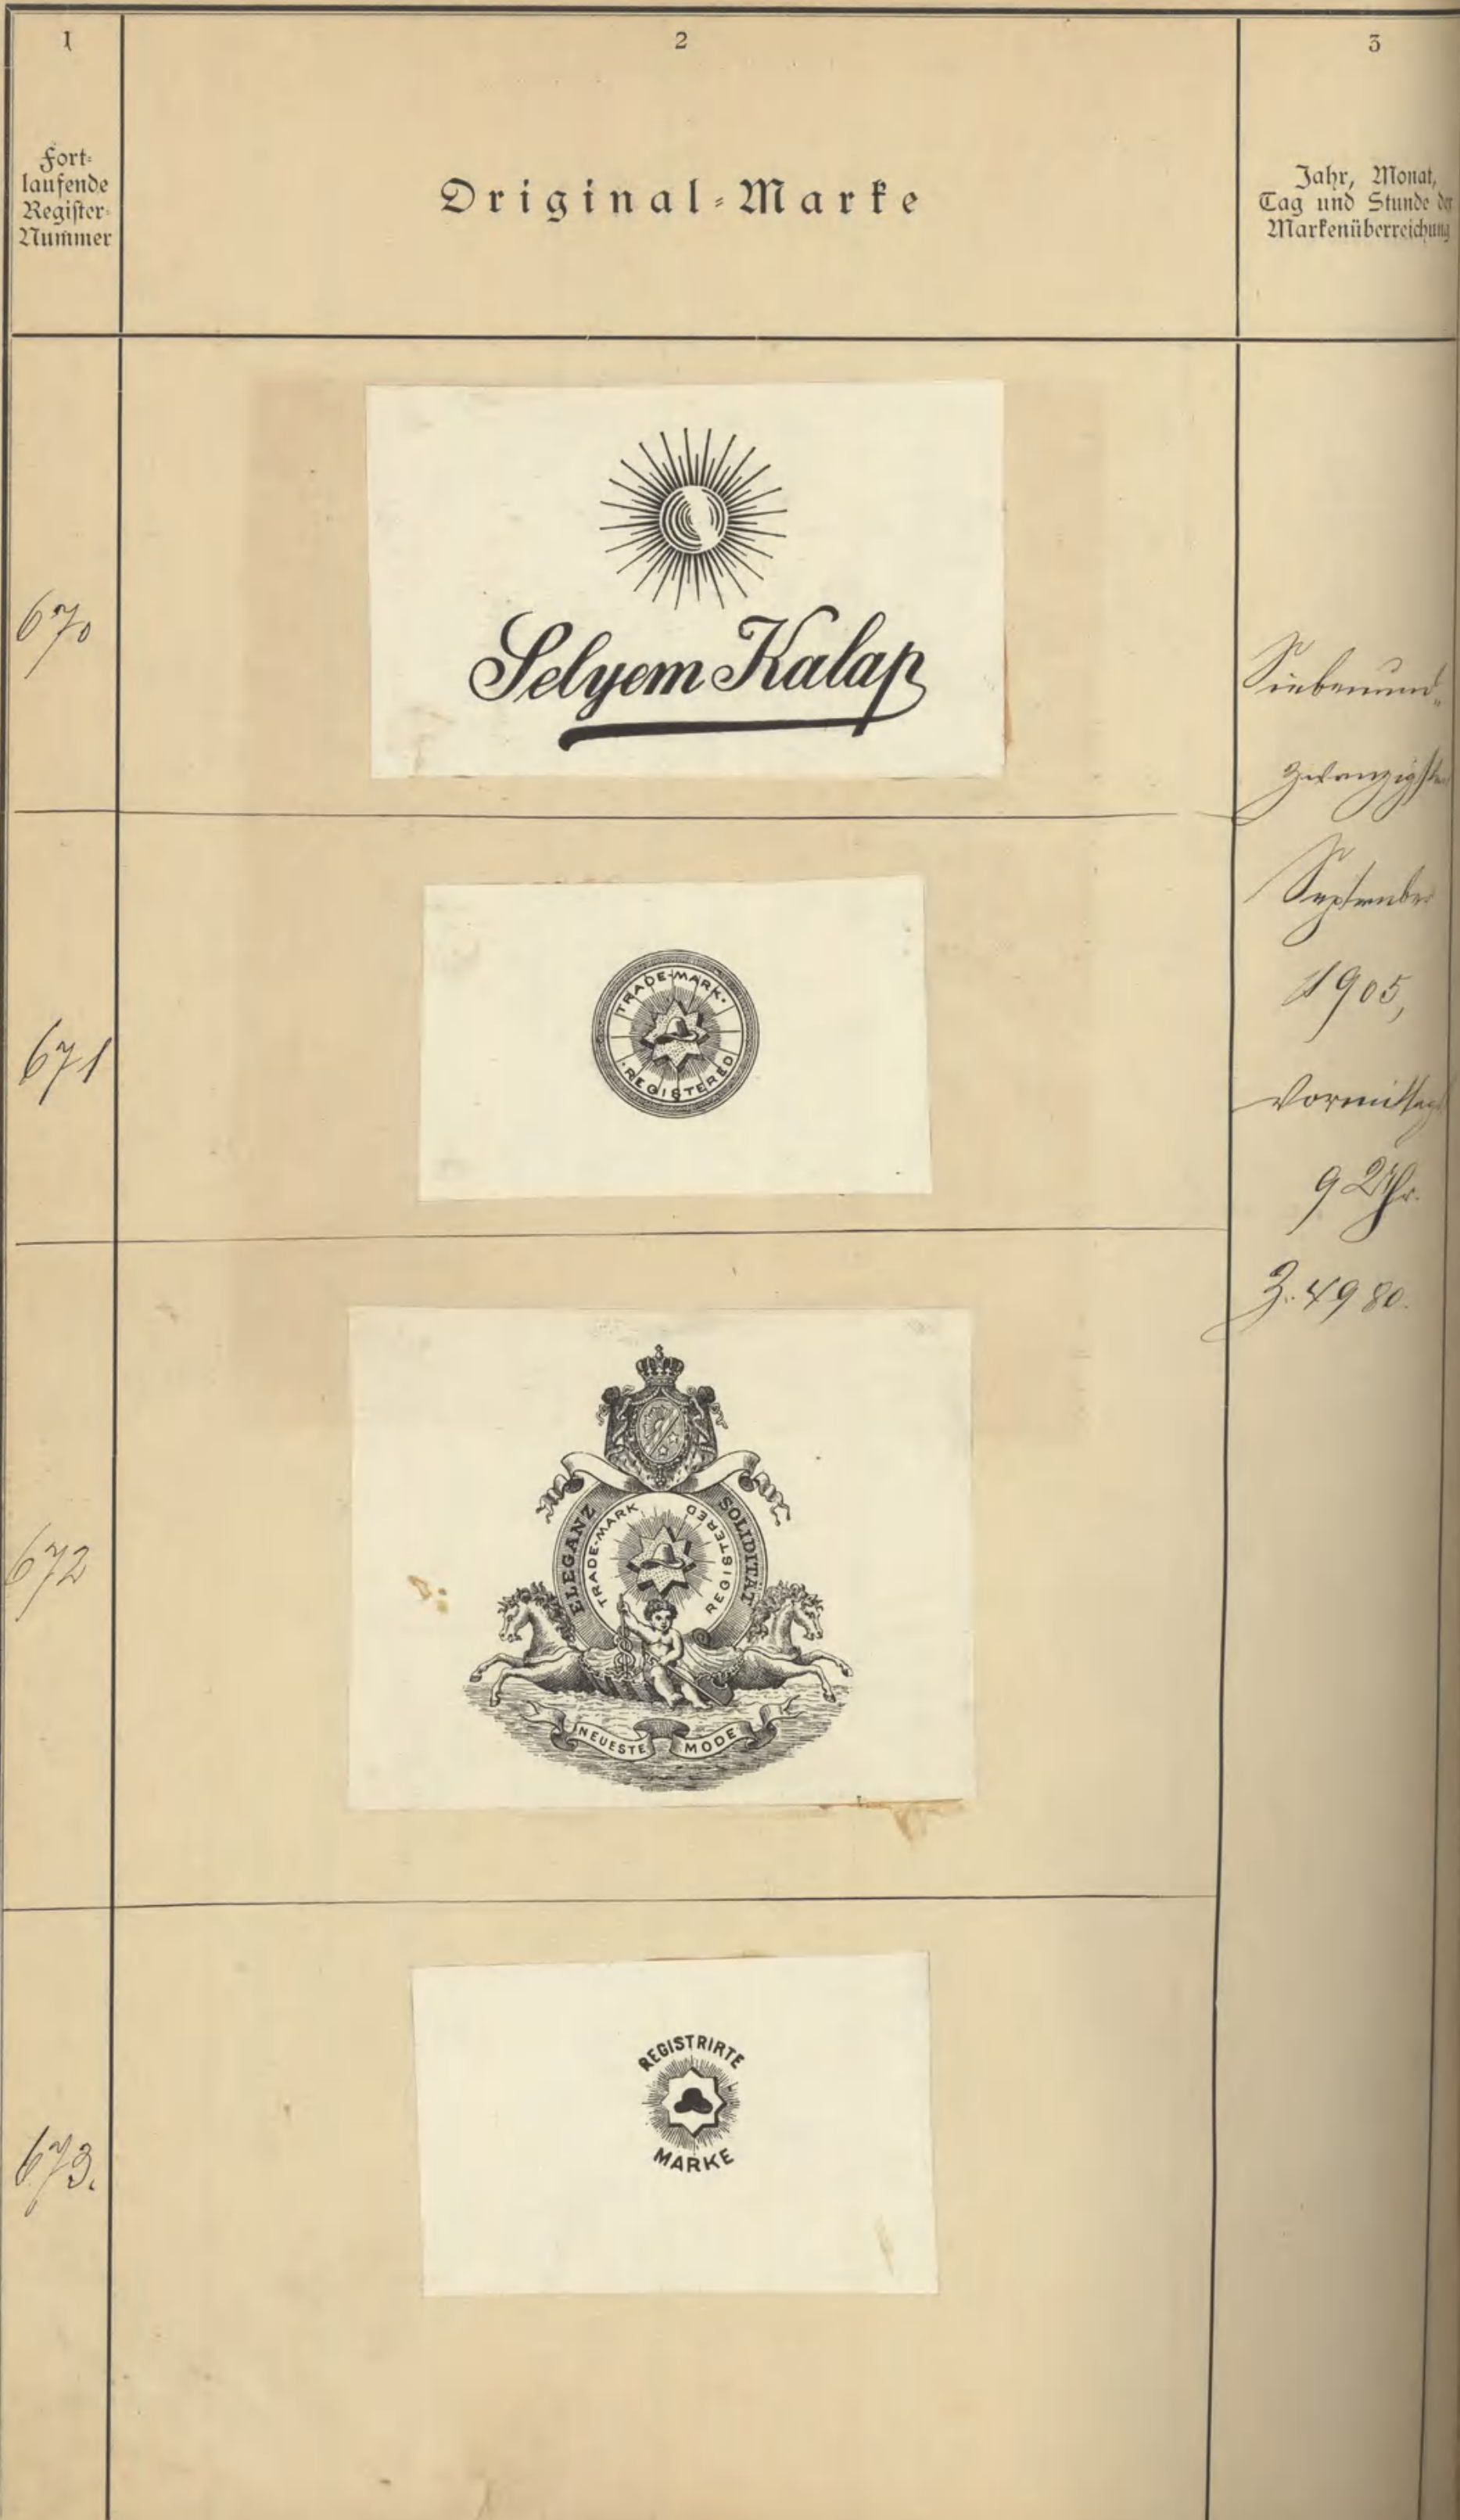 1
2
3
Fort-
laufende
Register-
Nummer
Original-Marke
Jahr, Monat,
Tag und Stunde der
Markenüberreichung
670
Selyem Kalap
Siebenund-
zwanzigsten
September
1905,
Vormittag
9 Uhr.
Z. 4980.
671
TRADE-MARK.
. REGISTERED
672
ELEGANZ
SOLIDITÄT
TRADE-MARK
REGISTERED
NEUESTE MODE
673.
REGISTRIRTE
MARKE